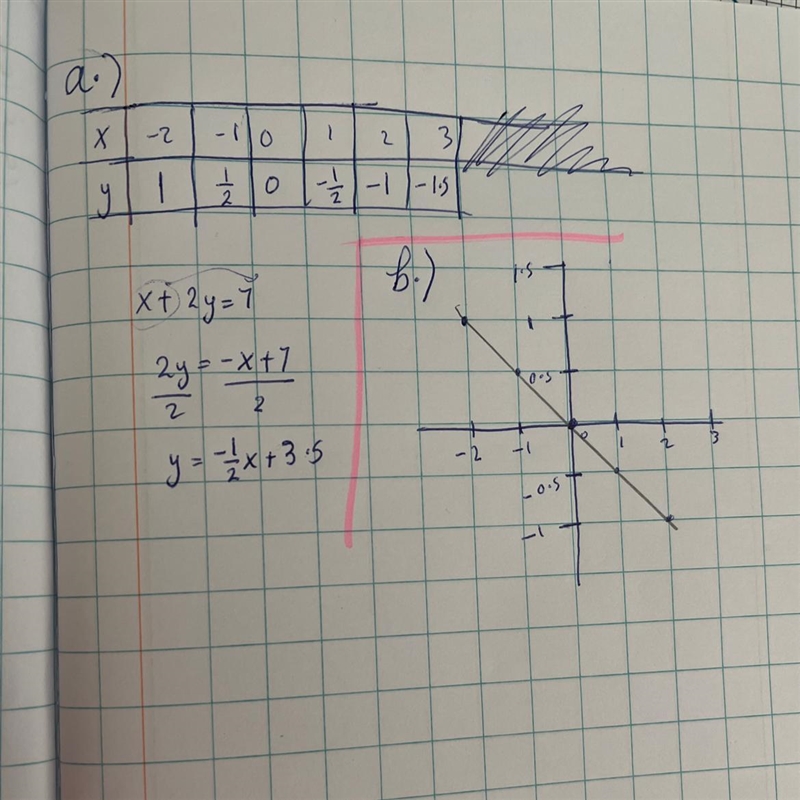 a.)
x -2 -1 0 1 2 3
y 1 1/2 0 -1/2 -1 -1.5
x + 2y = 7
2y/2 = -x+7/2
y = -1/2x + 3.5
b.)
1.5
1
0.5
-2 -1 0 1 2 3
-0.5
-1